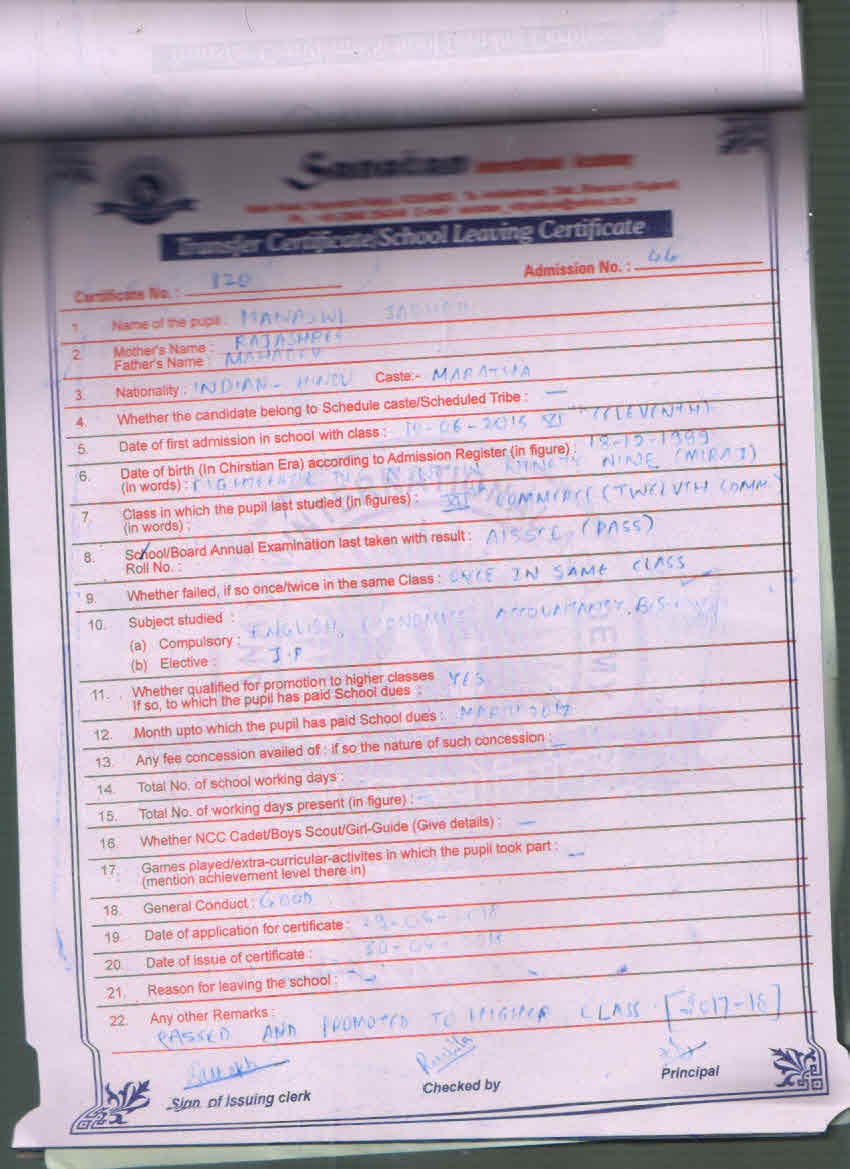 Sanatan
Transfer Certificate/School Leaving Certificate
Certificate No. : 120 Admission No. : 46
1. Name of the pupil : MANASWI JADHAV
2. Mother's Name : RAJASHREE
Father's Name : MAHADEV
3. Nationality : INDIAN - HINDU Caste:- MARATHA
4. Whether the candidate belong to Schedule caste/Scheduled Tribe : —
5. Date of first admission in school with class : -06-2015 XI (ELEVENTH)
6. Date of birth (In Chirstian Era) according to Admission Register (in figure) : 18-12-1999
(in words) : EIGHTEENTH NINETY NINE (MIRAJ)
7. Class in which the pupil last studied (in figures) : XII COMMERCE (TWELVTH COMM.)
(in words) :
8. School/Board Annual Examination last taken with result : AISSCE (PASS)
Roll No. :
9. Whether failed, if so once/twice in the same Class : ONCE IN SAME CLASS
10. Subject studied :
(a) Compulsory : ENGLISH, ECONOMICS ACCOUNTANCY, B.S.
(b) Elective : I.P
11. Whether qualified for promotion to higher classes YES
If so, to which the pupil has paid School dues :
12. Month upto which the pupil has paid School dues : MARCH
13. Any fee concession availed of : if so the nature of such concession : —
14. Total No. of school working days :
15. Total No. of working days present (in figure) : —
16. Whether NCC Cadet/Boys Scout/Girl-Guide (Give details) : —
17. Games played/extra-curricular-activites in which the pupil took part : —
(mention achievement level there in)
18. General Conduct : GOOD
19. Date of application for certificate : 29-05-2018
20. Date of issue of certificate :
21. Reason for leaving the school :
22. Any other Remarks :
PASSED AND PROMOTED TO HIGHER CLASS. [2017-18]
Sign. of Issuing clerk Checked by Principal